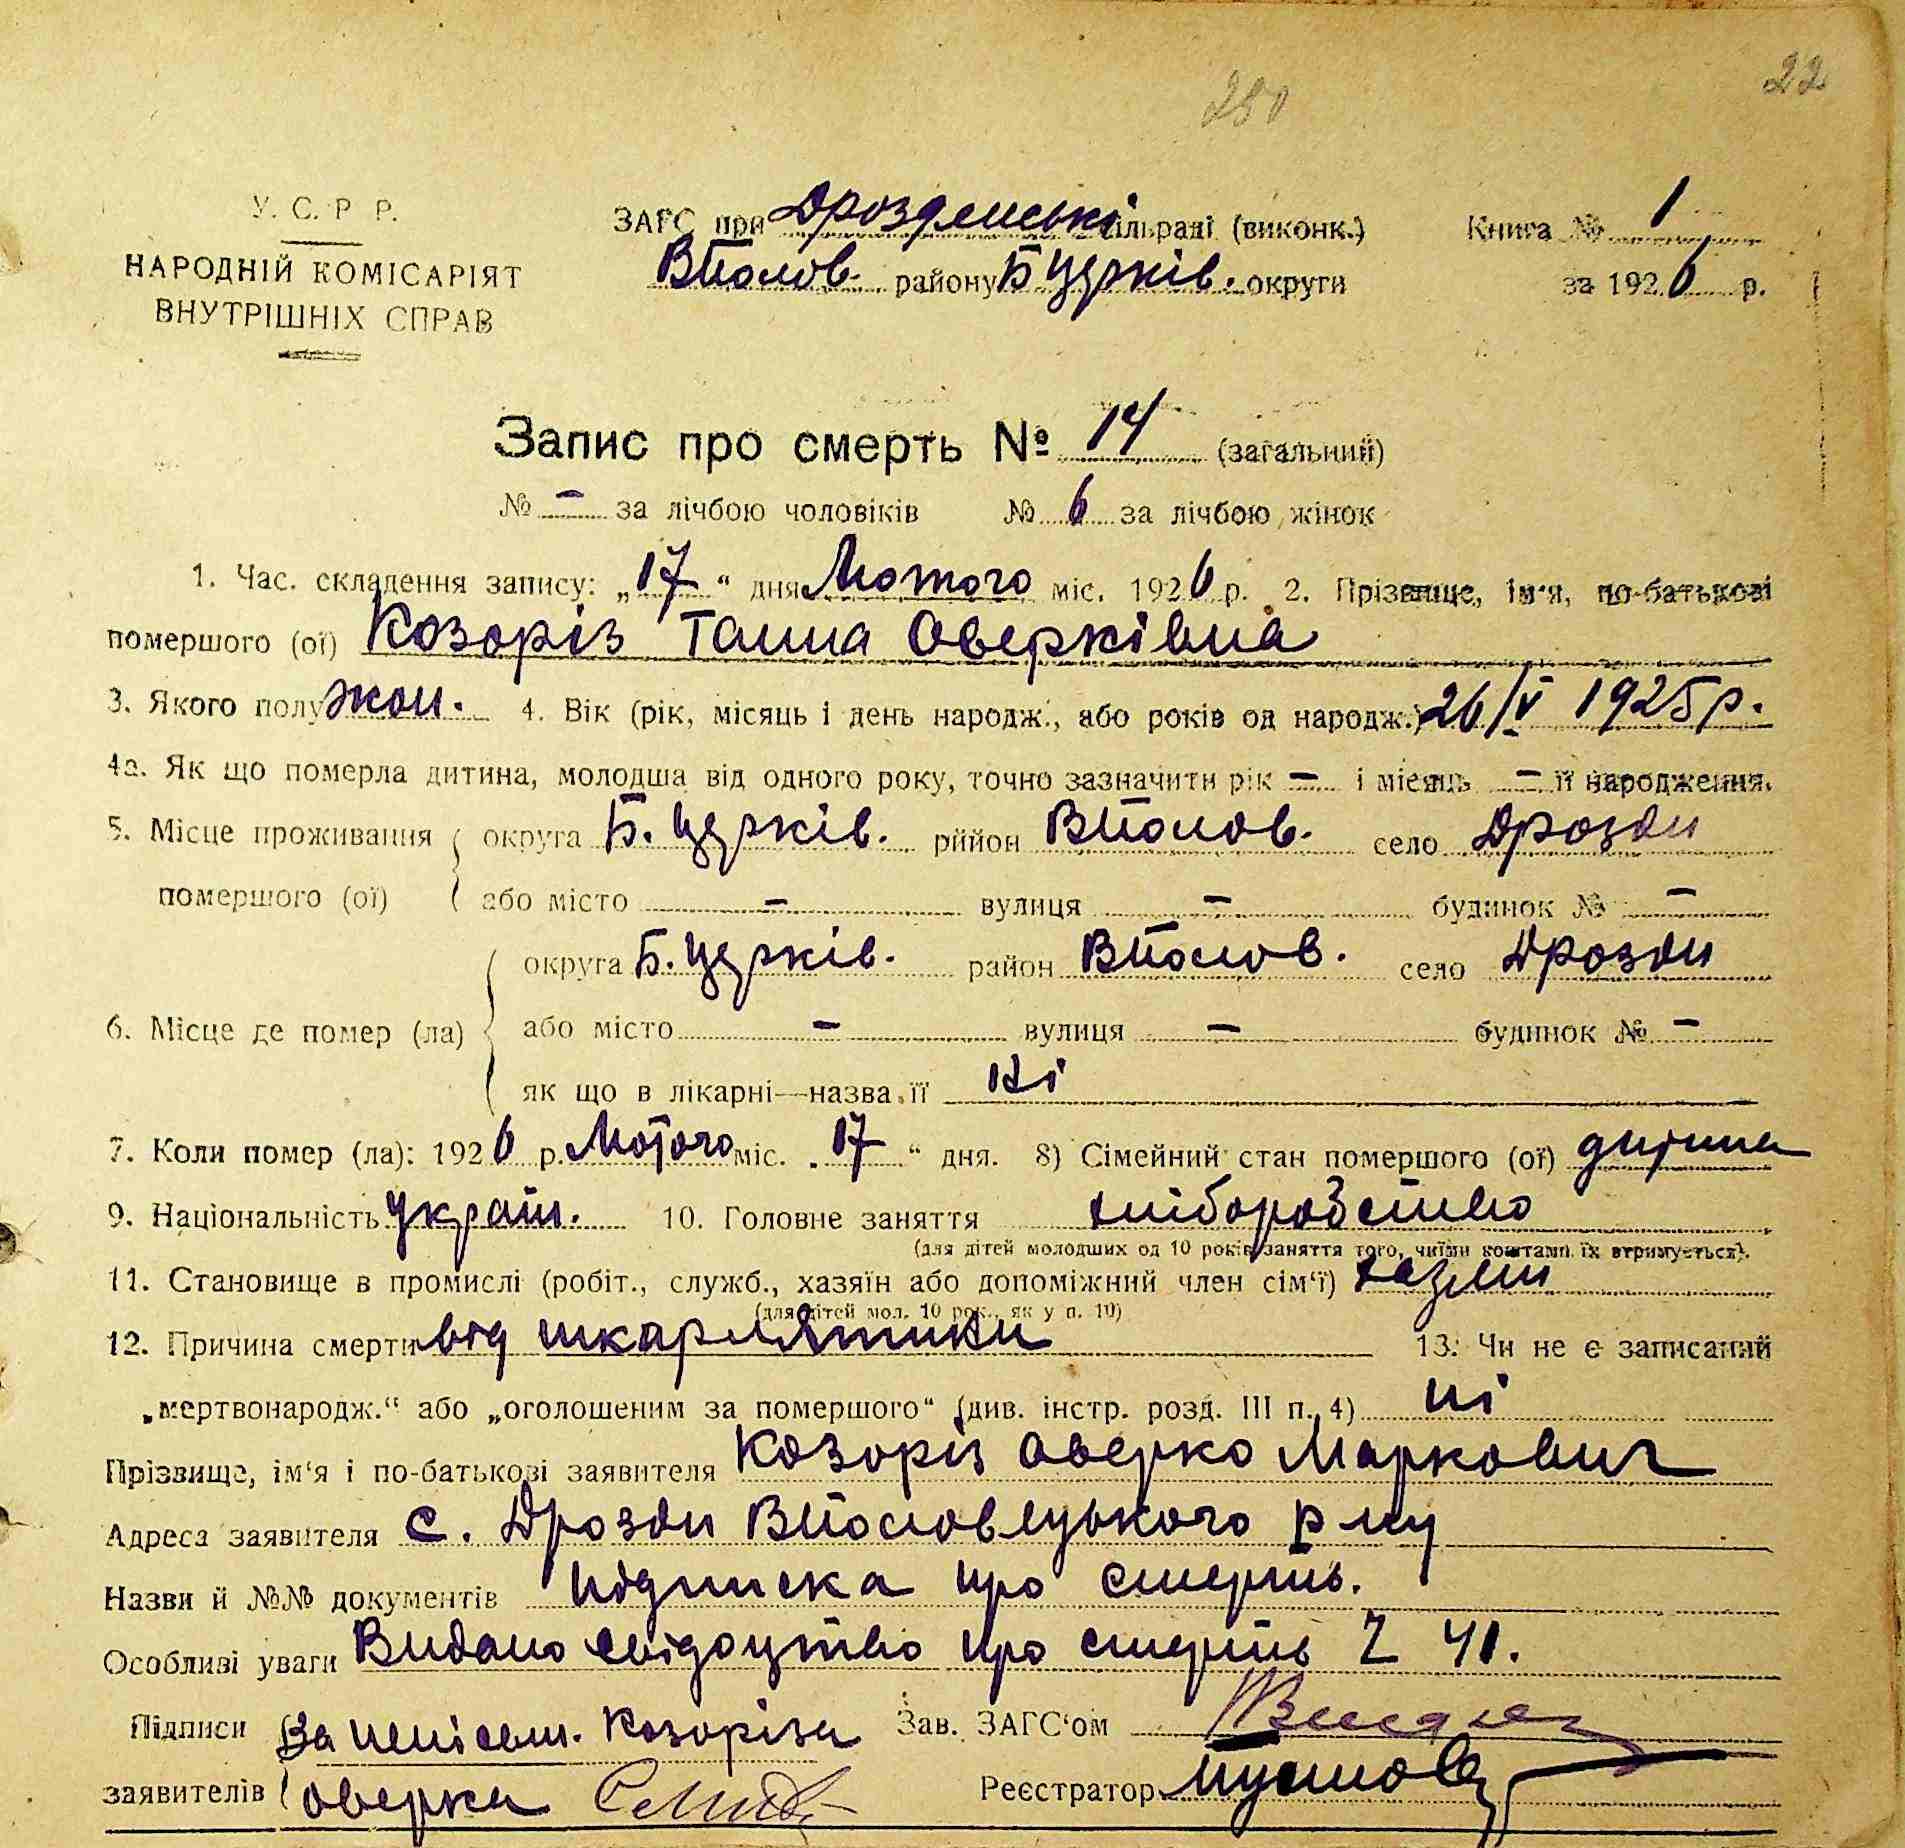 22
280
У. С. Р Р.
НАРОДНІЙ КОМІСАРІЯТ
ВНУТРІШНІХ СПРАВ
ЗАГС при Дрозденські сільраді (виконк.)
Вполов. району Б Церків. округи
Книга № 1
за 1926 р.
Запис про смерть № 14 (загальний)
№ – за лічбою чоловіків № 6 за лічбою жінок
1. Час. складення запису: „17“ дня Лютого міс. 1926 р. 2. Прізвище, ім'я, по-батькові
помершого (ої) Козоріз Ганна Оверківна
3. Якого полу жін. 4. Вік (рік, місяць і день народж., або років од народж.) 26/V 1925 р.
4а. Як що померла дитина, молодша від одного року, точно зазначити рік – і місяць – її народження.
5. Місце проживання округа Б. Церків. рийон Вполов. село Дрозди
помершого (ої) або місто – вулиця – будинок № –
округа Б. Церків. район Вполов. село Дрозди
6. Місце де помер (ла) або місто – вулиця – будинок № –
як що в лікарні—назва її ні
7. Коли помер (ла): 1926 р. Лютого міс. „17“ дня. 8) Сімейний стан помершого (ої) дитина
9. Національність Україн. 10. Головне заняття хліборобство
(для дітей молодших од 10 років заняття того, чиїми коштами їх втримується).
11. Становище в промислі (робіт., служб., хазяїн або допоміжний член сім'ї) хазяїн
(для дітей мол. 10 рок., як у п. 10)
12. Причина смерти від шкарлятини 13. Чи не є записаний
„мертвонародж.“ або „оголошеним за помершого“ (див. інстр. розд. III п. 4) ні
Прізвище, ім'я і по-батькові заявителя Козоріз Оверко Маркович
Адреса заявителя с. Дрозди Вполовецького р ну
Назви й №№ документів підписка про смерть.
Особливі уваги Видано свідоцтво про смерть Ч 41.
Підписи За неписьм. Козоріза Зав. ЗАГС'ом
заявителів Оверка Реєстратор